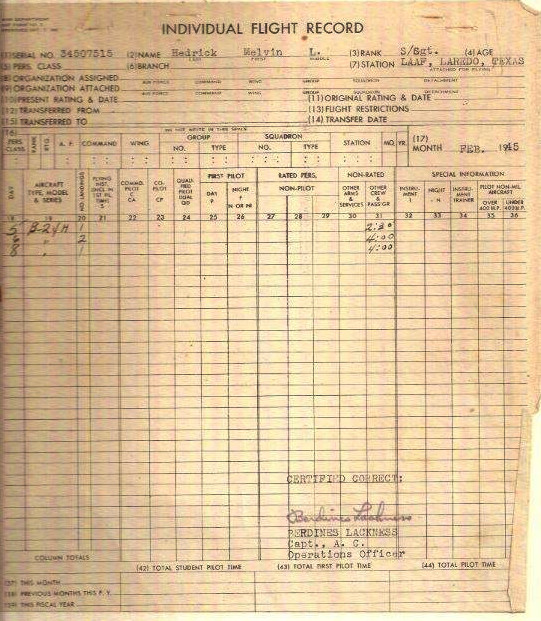 INDIVIDUAL FLIGHT RECORD
(1) SERIAL NO. 34507515 (2) NAME Hedrick Melvin L. (3) RANK S/Sgt. (4) AGE
LAST FIRST MIDDLE
(5) PERS. CLASS (6) BRANCH (7) STATION LAAF, LAREDO, TEXAS
ATTACHED FOR FLYING
(8) ORGANIZATION ASSIGNED
AIR FORCE COMMAND WING GROUP SQUADRON DETACHMENT
(9) ORGANIZATION ATTACHED
AIR FORCE COMMAND WING GROUP SQUADRON DETACHMENT
(10) PRESENT RATING & DATE (11) ORIGINAL RATING & DATE
(12) TRANSFERRED FROM (13) FLIGHT RESTRICTIONS
(15) TRANSFERRED TO (14) TRANSFER DATE
(16) DO NOT WRITE IN THIS SPACE
PERS. CLASS RANK RTG. A. F. COMMAND WING GROUP NO. TYPE SQUADRON NO. TYPE STATION MO. YR. (17) MONTH FEB. 1945
DAY AIRCRAFT TYPE, MODEL & SERIES NO. LANDINGS FLYING INST. (INCL. IN 1ST PIL. TIME) S COMMD. PILOT C CA CO-PILOT CP QUALIFIED PILOT DUAL QD FIRST PILOT DAY P NIGHT P N OR NI RATED PERS. NON-PILOT NON-RATED OTHER ARMS & SERVICES OTHER CREW & PASS'GR SPECIAL INFORMATION INSTRUMENT I NIGHT N INSTRUMENT TRAINER PILOT NON-MIL AIRCRAFT OVER 400 H.P. UNDER 400 H.P.
18 19 20 21 22 23 24 25 26 27 28 29 30 31 32 33 34 35 36
5 B-24H 1 2:30
6 " 2 4:00
8 " 1 4:00
CERTIFIED CORRECT:
Berdines Lackness
BERDINES LACKNESS
Capt., A. C.
Operations Officer
COLUMN TOTALS
(42) TOTAL STUDENT PILOT TIME (43) TOTAL FIRST PILOT TIME (44) TOTAL PILOT TIME
(37) THIS MONTH
(38) PREVIOUS MONTHS THIS F. Y.
(39) THIS FISCAL YEAR